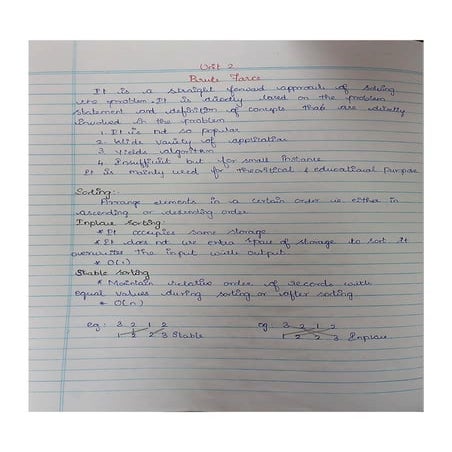 Unit 2
Brute Force
It is a straight forward approach of solving
the problem. It is directly based on the problem
statement and definition of concepts that are directly
involved in the problem
1. It is not so popular
2. Wide variety of application
3. Yields algorithm
4. Insufficient but for small instance
It is mainly used for theoritical & educational purpose
Sorting:-
Arrange elements in a certain order ie either in
ascending or descending order
Inplace Sorting:
* It occupies same storage
* It does not use extra space of storage to sort it
overwrites the input with output.
* O(1)
Stable sorting
* Maintain relative order of records with
equal values during sorting or after sorting.
* O(n)
eg: 3 2 1 2 eg: 3 2 1 2
1 2 2 3 Stable 1 2 2 3 Inplace